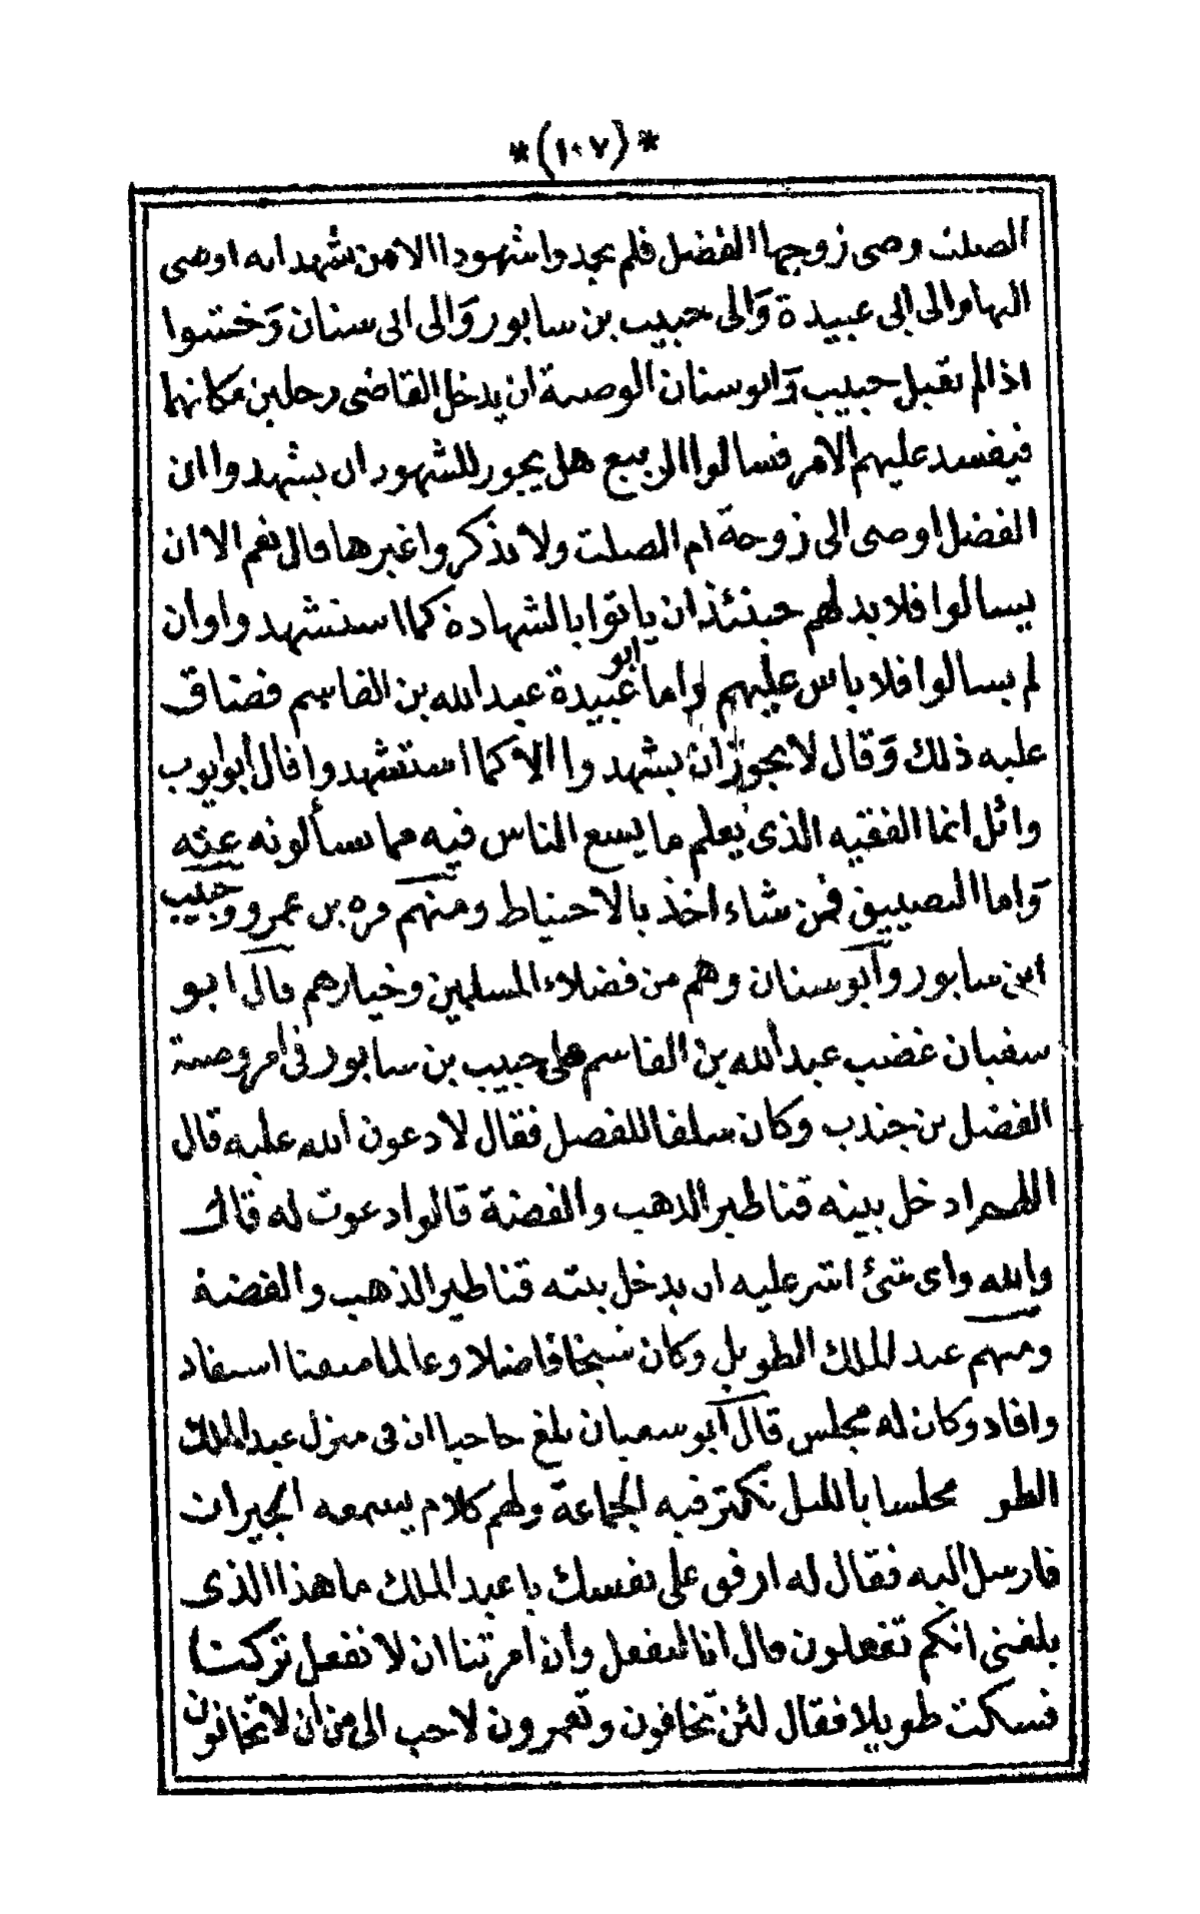 *(١٠٧)*
الصلت وصى زوجها الفضل فلم يجدوا شهودا الا من يشهد انه اوصى
اليها والى ابى عبيدة وَالى حبيب بن سابور وَالى ابى سنان وَخشوا
اذا لم يقبل حبيب وَابو سنان الوصية ان يدخل القاضى رجلين مكانهما
فيفسد عليهم الامر فسالوا الربيع هل يجوز للشهود ان يشهدوا ان
الفضل اوصى الى زوجة ام الصلت ولا يذكروا غيرها قال نعم الا ان
يسالوا فلا بد لهم حينئذ ان ياتوا بالشهادة كما استشهدوا وان
لم يسالوا فلا باس عليهم واما ابو عبيدة عبد الله بن القاسم فضاق
عليه ذلك وَقال لا يجوز ان يشهدوا الا كما استشهدوا قال ابو ايوب
وائل انما الفقيه الذى يعلم ما يسع الناس فيه مما يسألونه عنه
وَاما التضييق فمن شاء اخذ بالاحتياط ومنهم مره بن عمرو وحبيب
ابن سابور وابو سنان وهم من فضلاء المسلمين وخيارهم قال ابو
سفيان غضب عبد الله بن القاسم على حبيب بن سابور فى امر وصية
الفضل بن جندب وكان سلفا للفضل فقال لادعون الله عليه قال
اللهم ادخل بيته قناطير الذهب والفضة قالوا دعوت له قال
والله واى شئ اشر عليه ان يدخل بيته قناطير الذهب والفضة
ومنهم عبد الملك الطويل وكان شيخا فاضلا وعالما متفننا استفاد
وافاد وكان له مجلس قال ابو سفيان بلغ حاجبا ان فى منزل عبد الملك
الطو مجلسا بالليل تكثر فيه الجماعة ولهم كلام يسمعه الجيران
فارسل اليه فقال له ارفق على نفسك يا عبد الملك ما هذا الذى
بلغنى انكم تفعلون قال انا لنفعل وان امرتنا ان لا نفعل تركنا
فسكت طويلا فقال لئن تخافون وتعمرون لاحب الى من ان لا تخافون